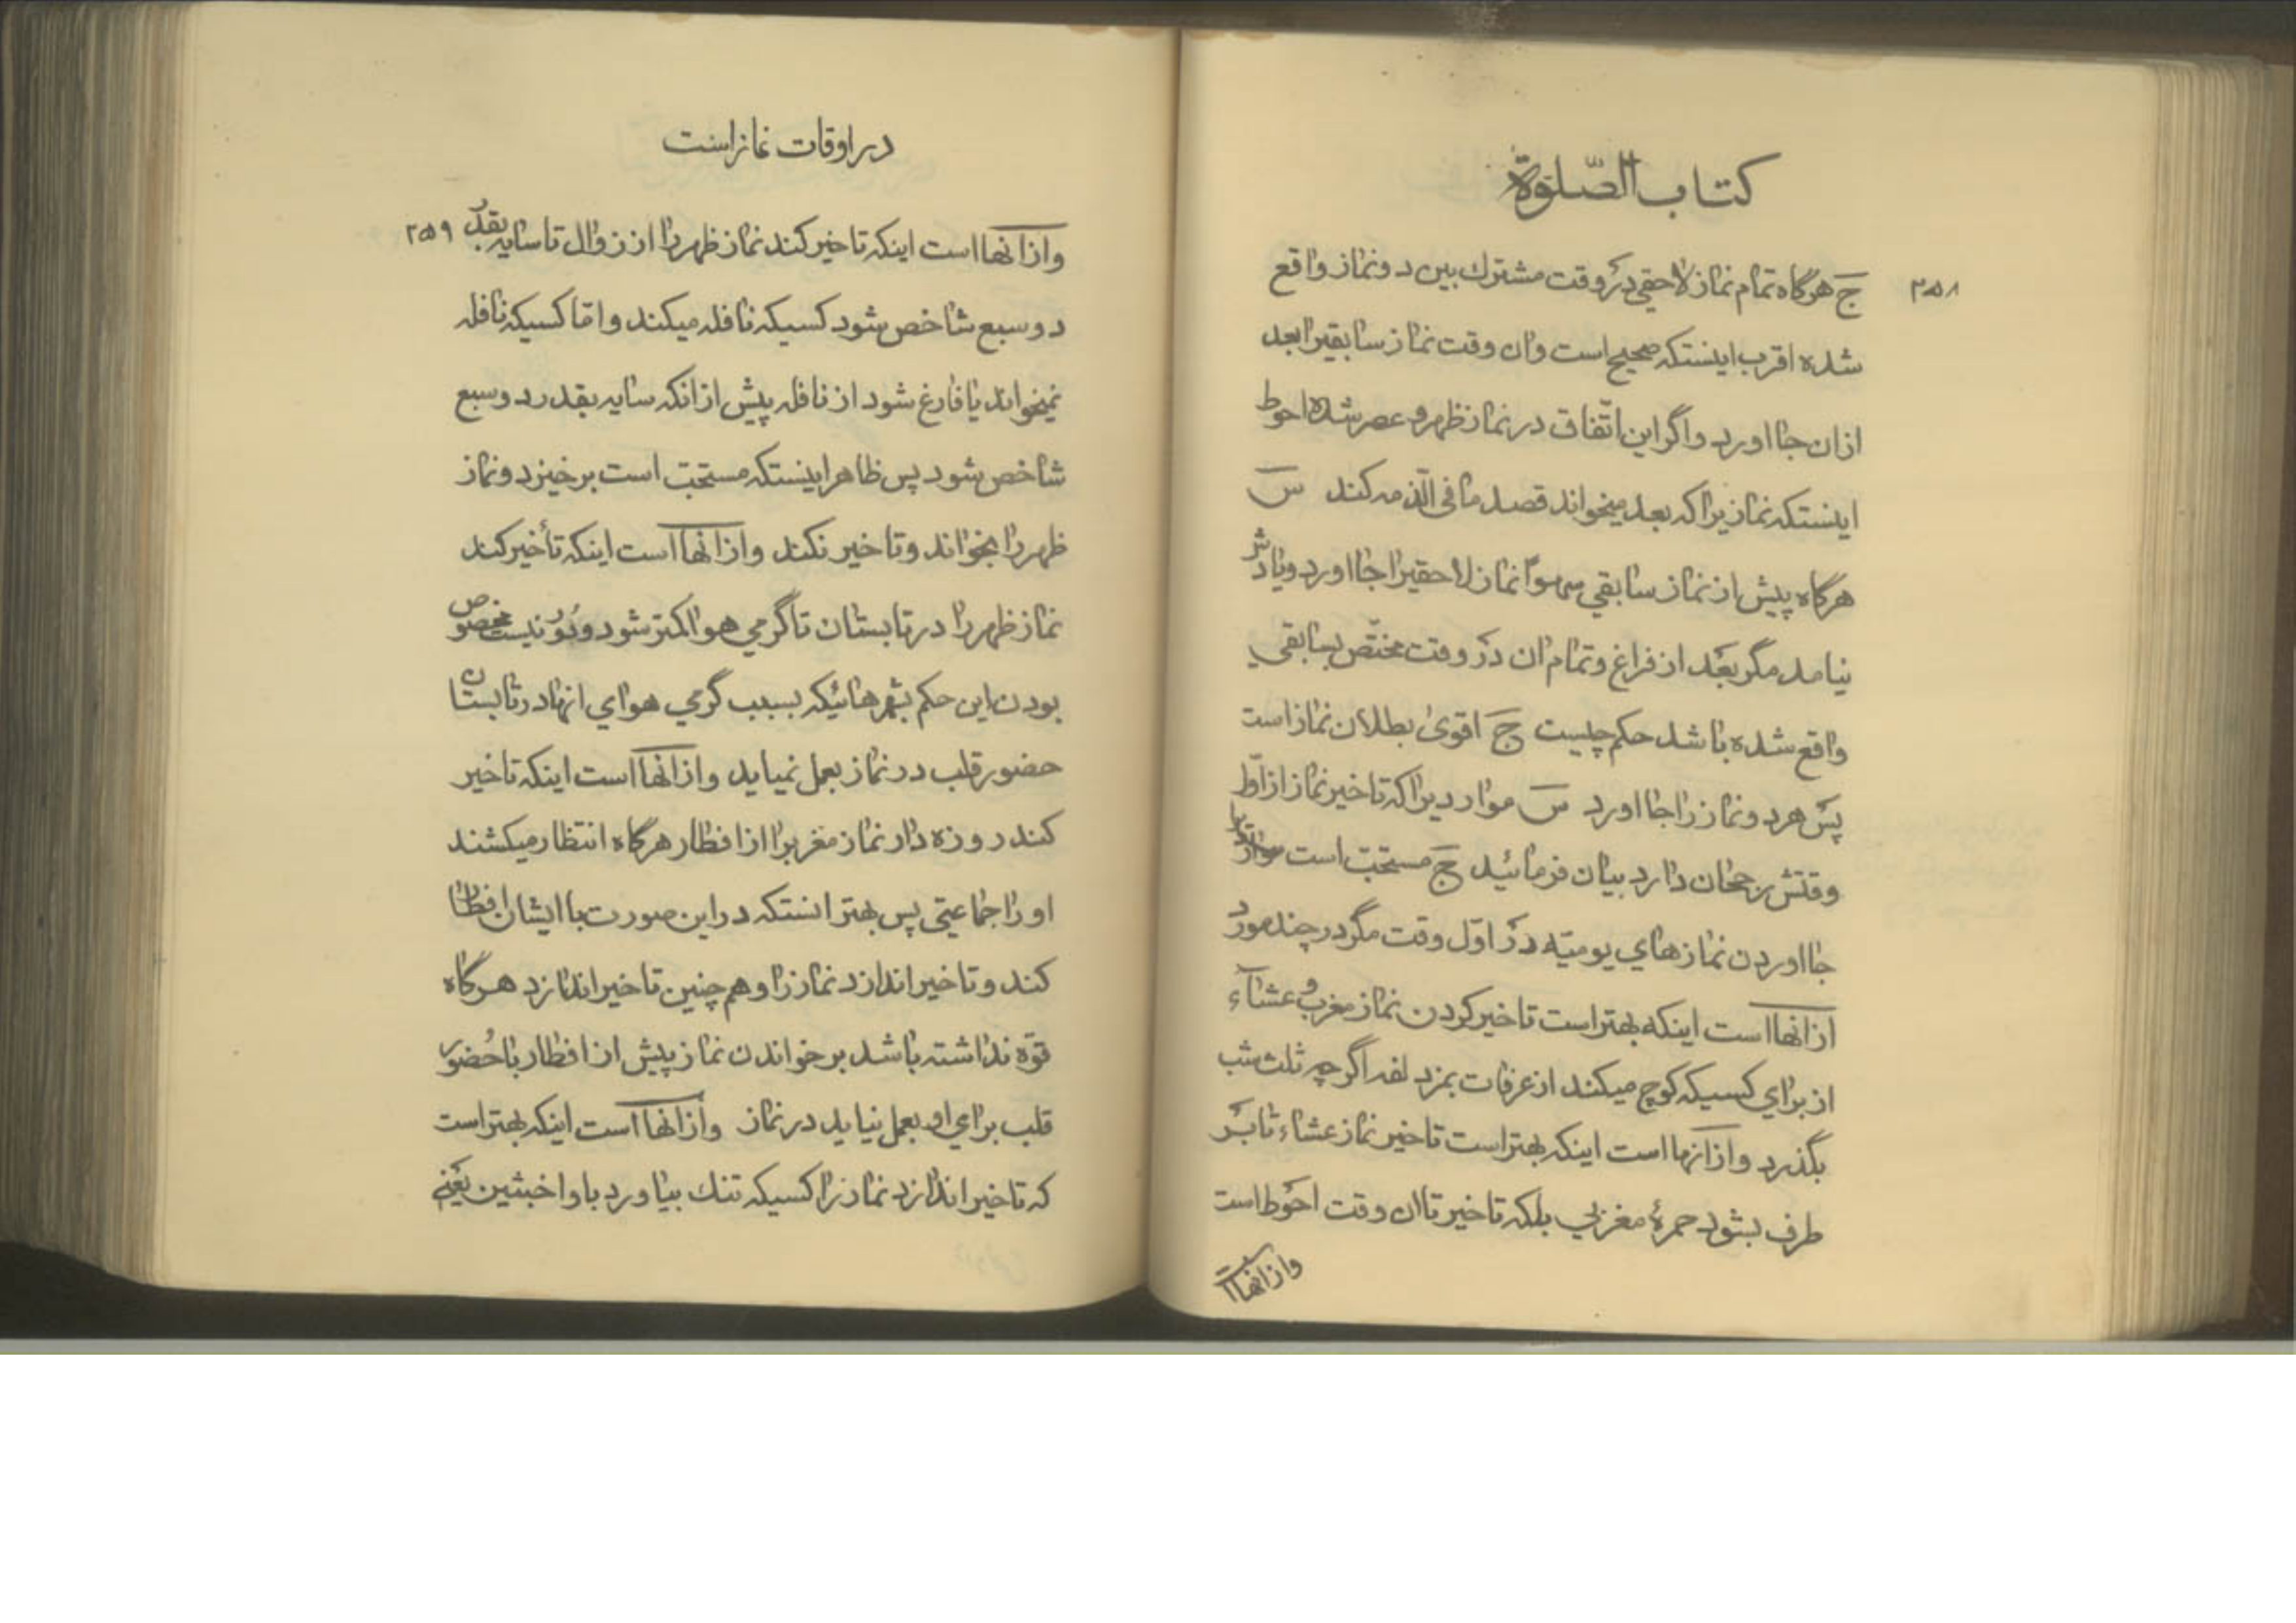 كتاب الصّلوة
٢٥٨
ج هرگاه تمام نماز لاحقي در وقت مشترك بين دو نماز واقع
شده اقرب اينستكه صحيح است وان وقت نماز سابقيرا بعد
ازان جا اورد واگر اين اتّفاق در نماز ظهر و عصر شده احوط
اينستكه نمازيرا كه بعد ميخواند قصد ما في الذّمه كند س
هرگاه پيش از نماز سابقي سهواً نماز لاحقيرا جا اورد ويادش
نيامد مگر بعد از فراغ وتمام ان در وقت مختّص بسابقي
واقع شده باشد حكم چيست ج اقوى بطلان نماز است
پس هر دو نماز را جا اورد س مواردیرا كه تاخير نماز از اوّل
وقتش رجحان دارد بيان فرمائيد ج مستحبّ است
جا اوردن نمازهاي يوميّه در اوّل وقت مگر در چند مورد
ازانها است اينكه بهتر است تاخير كردن نماز مغرب و عشآء
از براي كسيكه كوچ ميكند از عرفات بمزدلفه اگر چه ثلث شب
بگذرد وازانها است اينكه بهتر است تاخير نماز عشاء تا بر
طرف بشود حمرهٔ مغربي بلكه تاخير تا ان وقت احوط است
وازانها ا
در اوقات نماز است
وازانها است اينكه تاخير كند نماز ظهر را از زوال تا سايه بقدر ٢٥٩
دو سبع شاخص شود كسيكه نافله ميكند وامّا كسيكه نافله
نميخواند يا فارغ شود از نافله پيش ازانكه سايه بقدر دو سبع
شاخص شود پس ظاهر اينستكه مستحبّ است برخيزد و نماز
ظهر را بخواند وتاخير نكند وازانها است اينكه تأخير كند
نماز ظهر را در تابستان تا گرمي هوا كمتر شود ودُور نيست مخصوص
بودن اين حكم بشهرهائيكه بسبب گرمي هواي انها در تابستان
حضور قلب در نماز بعمل نميايد وازانها است اينكه تاخير
كند روزه دار نماز مغربرا از افطار هرگاه انتظار ميكشند
او را جماعتي پس بهتر انستكه در اين صورت با ايشان افطار
كند وتاخير اندازد نماز را وهم چنين تاخير اندازد هرگاه
قوّه نداشته باشد بر خواندن نماز پيش از افطار با حُضور
قلب براي او بعمل نيايد در نماز وازانها است اينكه بهتر است
كه تاخير اندازد نماز را كسيكه تنك بياورد باو اخبثين يعني